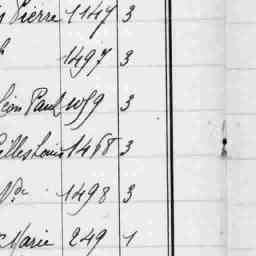 Pierre 1147 3
1497 3
Léon Paul 1059 3
Gilles Louis 1468 3
Vve 1498 3
Marie 249 1